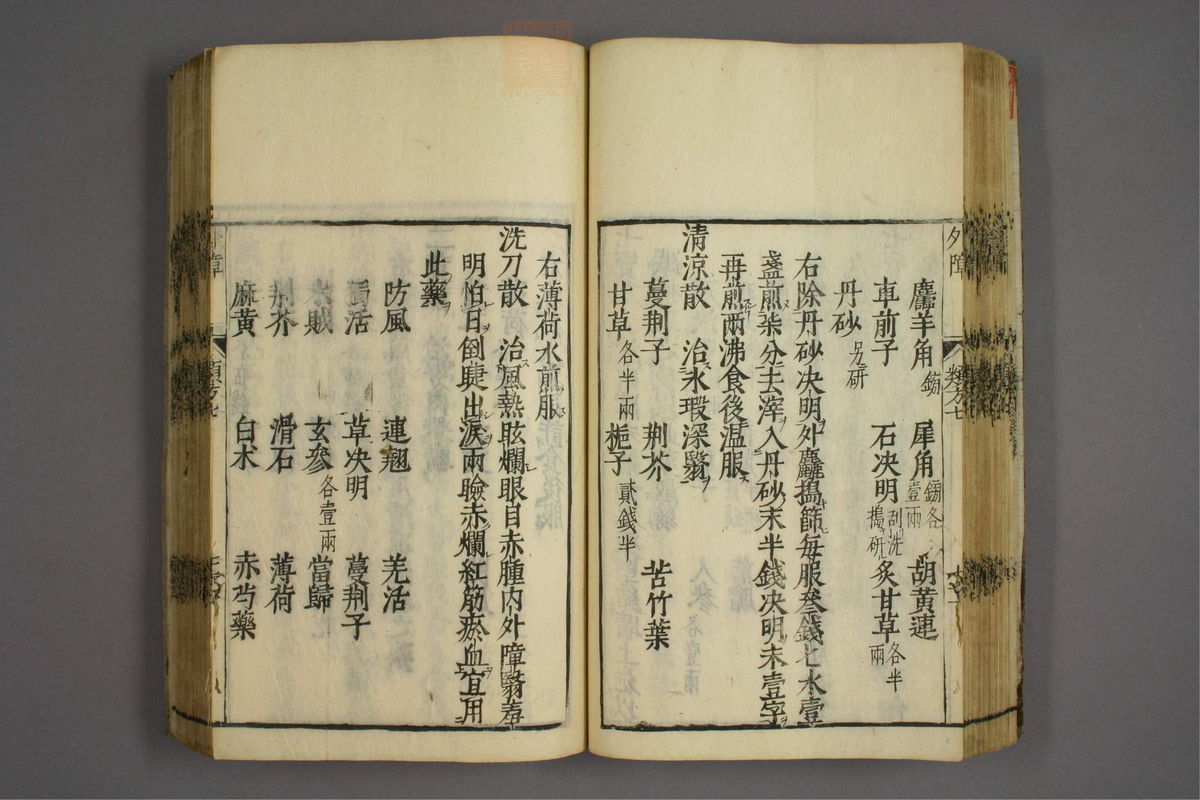 外障 類方七
麢羊角鎊 犀角鎊各壹兩 胡黃連
車前子 石决明刮洗搗研 炙甘草各半兩
丹砂另研
右除丹砂决明外麤搗篩每服叄錢匕水壹
盞煎柒分去滓入丹砂末半錢决明末壹字
再煎兩沸食後温服
清涼散 治氷瑕深翳
蔓荆子 荆芥 苦竹葉
甘草各半兩 梔子貳錢半
右薄荷水煎服
洗刀散 治風熱眩爛眼目赤腫內外障翳羞
明怕日倒睫出淚兩瞼赤爛紅筋瘀血宜用
此藥
防風 連翹 羌活
獨活 草决明 蔓荆子
木賊 玄參各壹兩 當歸
荆芥 滑石 薄荷
麻黃 白术 赤芍藥
外障 類方七